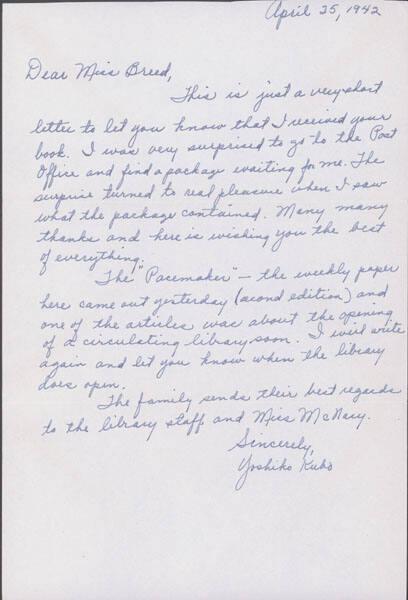 April 25, 1942
Dear Miss Breed,
This is just a very short
letter to let you know that I received your
book. I was very surprised to go to the Post
Office and find a package waiting for me. The
surprise turned to real pleasure when I saw
what the package contained. Many many
thanks and here is wishing you the best
of everything.
The "Pacemaker" — the weekly paper
here came out yesterday (second edition) and
one of the articles was about the opening
of a circulating library soon. I will write
again and let you know when the library
does open.
The family sends their best regards
to the library staff and Miss McNary.
Sincerely,
Yoshiko Kubo